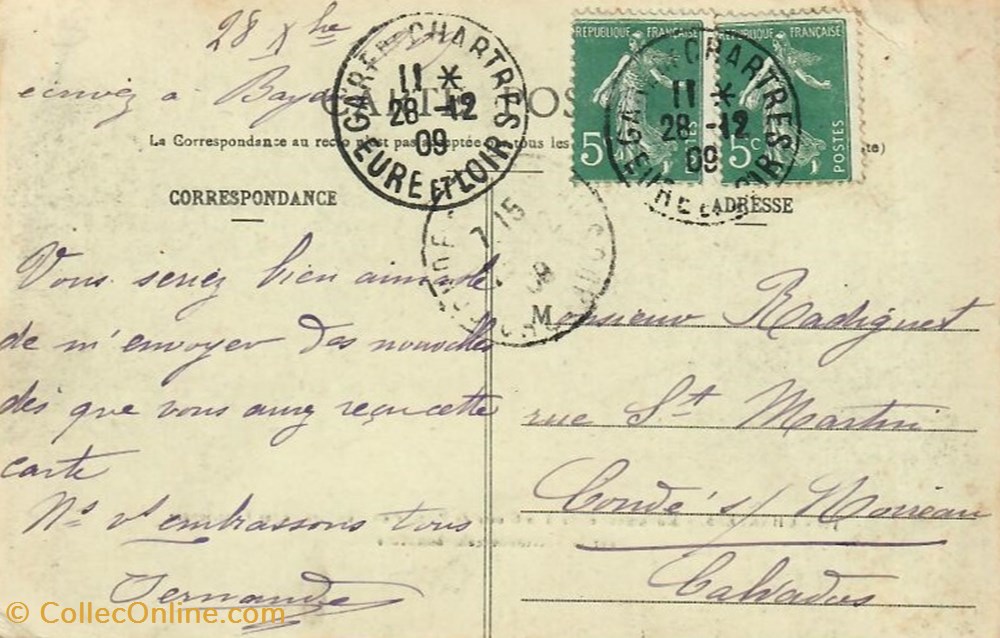 28 Xbre
à
CARTE POS
La Correspondance au recto n'est pas acceptée par tous les
te)
CORRESPONDANCE
ADRESSE
GARE DE CHARTRES
11 *
28 -12
09
EURE ET LOIR
REPUBLIQUE FRANÇAISE
5
REPUBLIQUE FRANÇAISE
5c
POSTES
GARE DE CHARTRES
11 *
28 -12
09
EURE ET LOIR
7 15
09
Vous seriez bien aimable
de m'envoyer des nouvelles
dès que vous aurez reçu cette
carte
Ns vs embrassons tous
Fernande
Monsieur Radiguet
rue St Martin
Condé s/ Noireau
Calvados
© CollecOnline.com